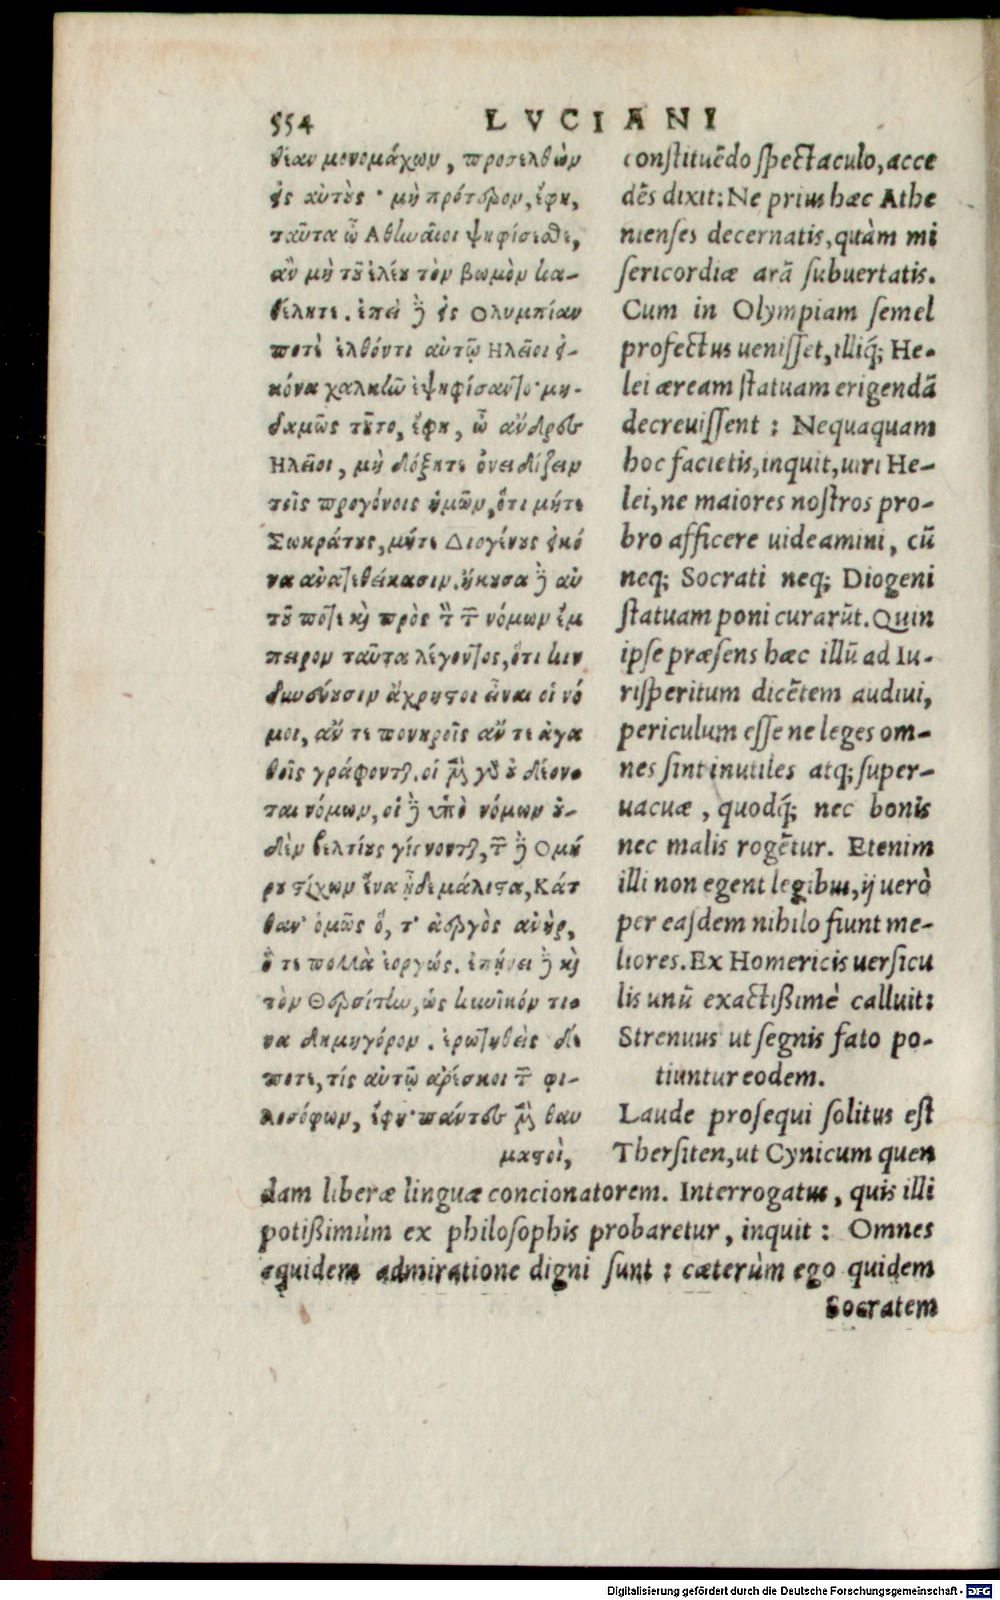 554 LVCIANI
θέαν μονομάχων, προσελθὼν
ἐς αὐτὰς· μὴ πρότερον, ἔφη,
ταῦτα ὦ Αθηναῖοι ψηφίσεσθε,
ἂν μὴ τοῦ ἐλέου τὸν βωμὸν κα-
θέλητε. ἐπεὶ ἢ ἐς Ολυμπίαν
ποτὲ ἐλθόντι αὐτῷ Ηλεῖοι ἐ-
κόνα χαλκῶ ἐψηφίσαντο· μη-
δαμῶς τοῦτο, ἔφη, ὦ ἄνδρες
Ηλεῖοι, μὴ δόξητε ὀνειδίζειν
τοῖς προγόνοις ὑμῶν, ὅτι μήτε
Σωκράτους, μήτε Διογένους ἐκό
να ἀνατεθείκασιν. ἤκουσα δὲ αὐ
τοῦ ποτε καὶ πρὸς τ τ νόμων ἔμ
πειρον ταῦτα λέγοντος, ὅτι κιν
δυνεύουσιν ἄχρηστοι εἶναι οἱ νό
μοι, ἄν τε πονηροῖς ἄν τε ἀγα
θοῖς γράφοντ. οἱ μὲν γὸ οὐ δέονο
ται νόμων, οἱ δὲ ὑπὸ νόμων οὐ-
δὲν βελτίους γίγνοντ, τ δὲ Ομή
ρου στίχων ἕνα ᾖδε μάλιστα, Κάτ
θαν' ὁμῶς ὅ, τ' ἀεργὸς ἀνὴρ,
ὅ τε πολλὰ ἐοργώς. ἐπῄνει δὲ καὶ
τὸν Θερσίτην, ὡς κυνικόν τιο
να δημηγόρον. ἐρωτηθεὶς δέ
ποτε, τίς αὐτῷ ἀρέσκοι τ φι-
λοσόφων, ἔφη· πάντες μὲν θαυ
μαστοὶ,
constituẽdo spectaculo, acce
dẽs dixit: Ne prius hæc Athe
nienses decernatis, quàm mi
sericordiæ arã subuertatis.
Cum in Olympiam semel
profectus uenisset, illiq́; He-
lei æream statuam erigendã
decreuissent : Nequaquam
hoc facietis, inquit, uiri He-
lei, ne maiores nostros pro-
bro afficere uideamini, cũ
neq; Socrati neq; Diogeni
statuam poni curarũt. Quin
ipse præsens hæc illũ ad Iu-
risperitum dicẽtem audiui,
periculum esse ne leges om-
nes sint inutiles atq; super-
uacuæ , quodq́; nec bonis
nec malis rogẽtur. Etenim
illi non egent legibus, ij uerò
per easdem nihilo fiunt me-
liores. Ex Homericis uersicu
lis unũ exactißimè calluit:
Strenuus ut segnis fato po-
tiuntur eodem.
Laude prosequi solitus est
Thersiten, ut Cynicum quen
dam liberæ linguæ concionatorem. Interrogatus, quis illi
potißimùm ex philosophis probaretur, inquit : Omnes
equidem admiratione digni sunt : cæterùm ego quidem
Socratem
Digitalisierung gefördert durch die Deutsche Forschungsgemeinschaft - DFG